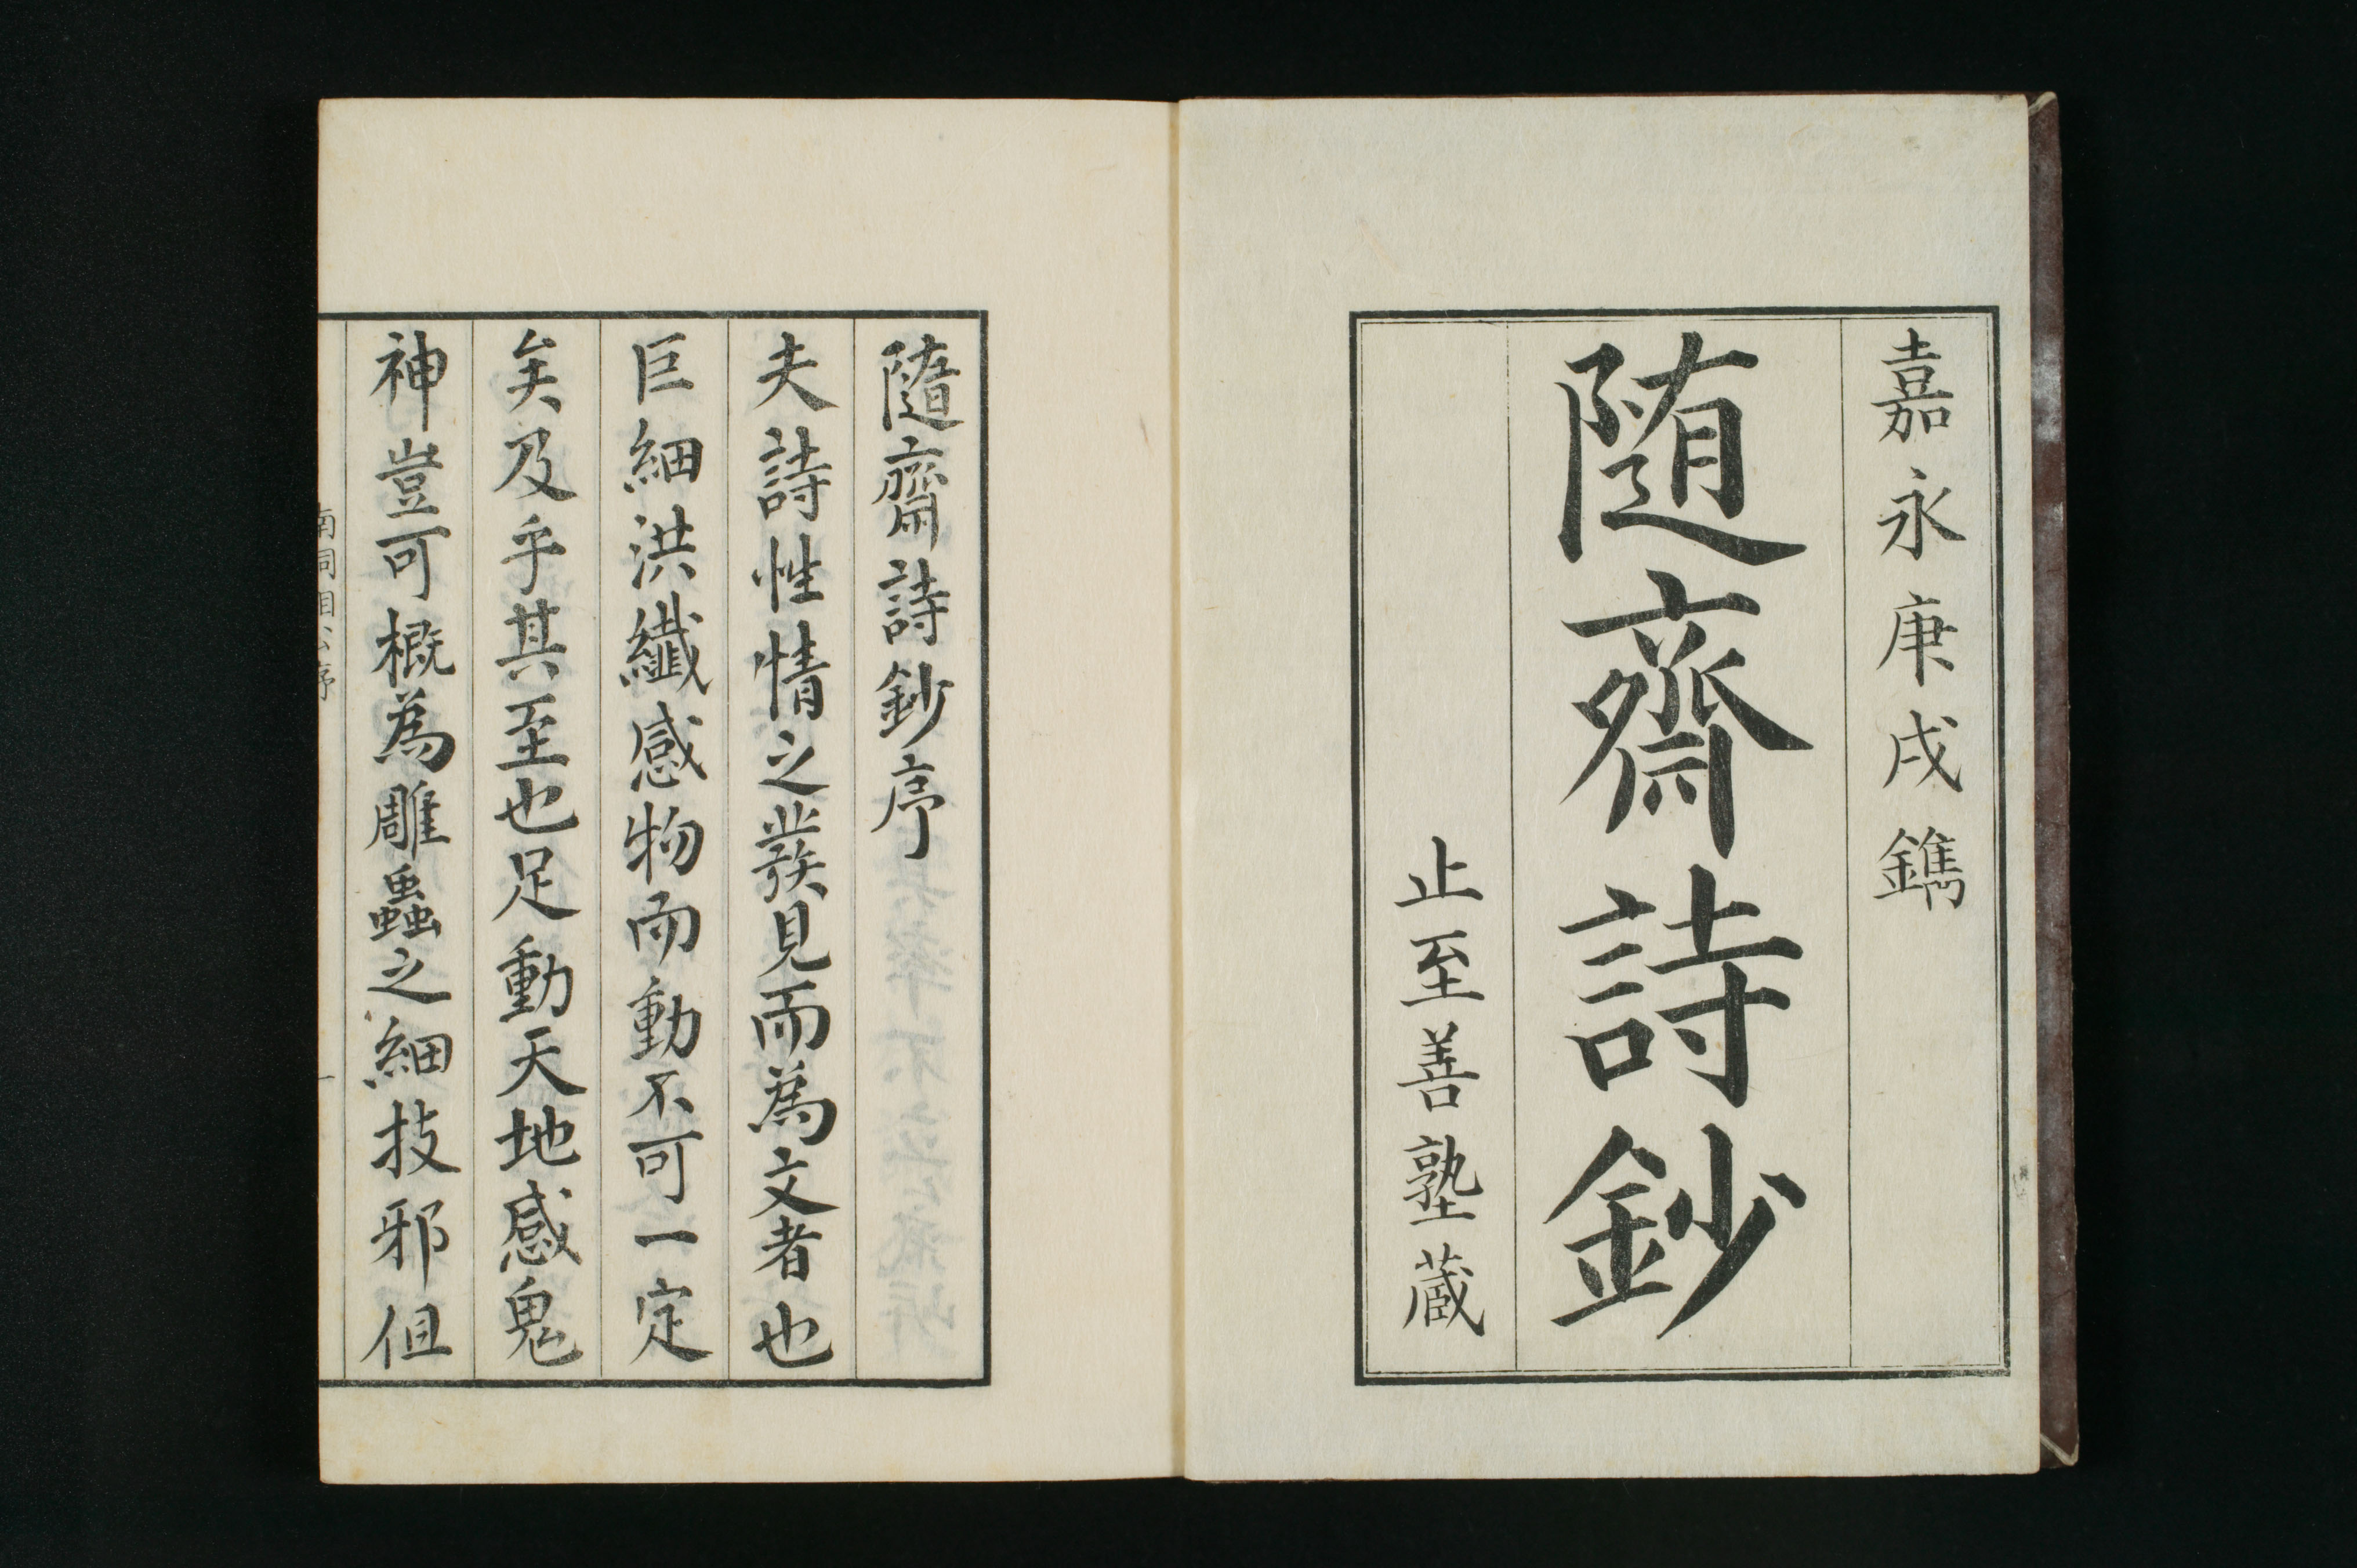 嘉永庚戌鐫
随齋詩鈔
止至善塾蔵
隨齋詩鈔序
夫詩性情之發見而為文者也
巨細洪纖感物而動不可一定
矣及乎其至也足動天地感鬼
神豈可概為雕蟲之細技邪但